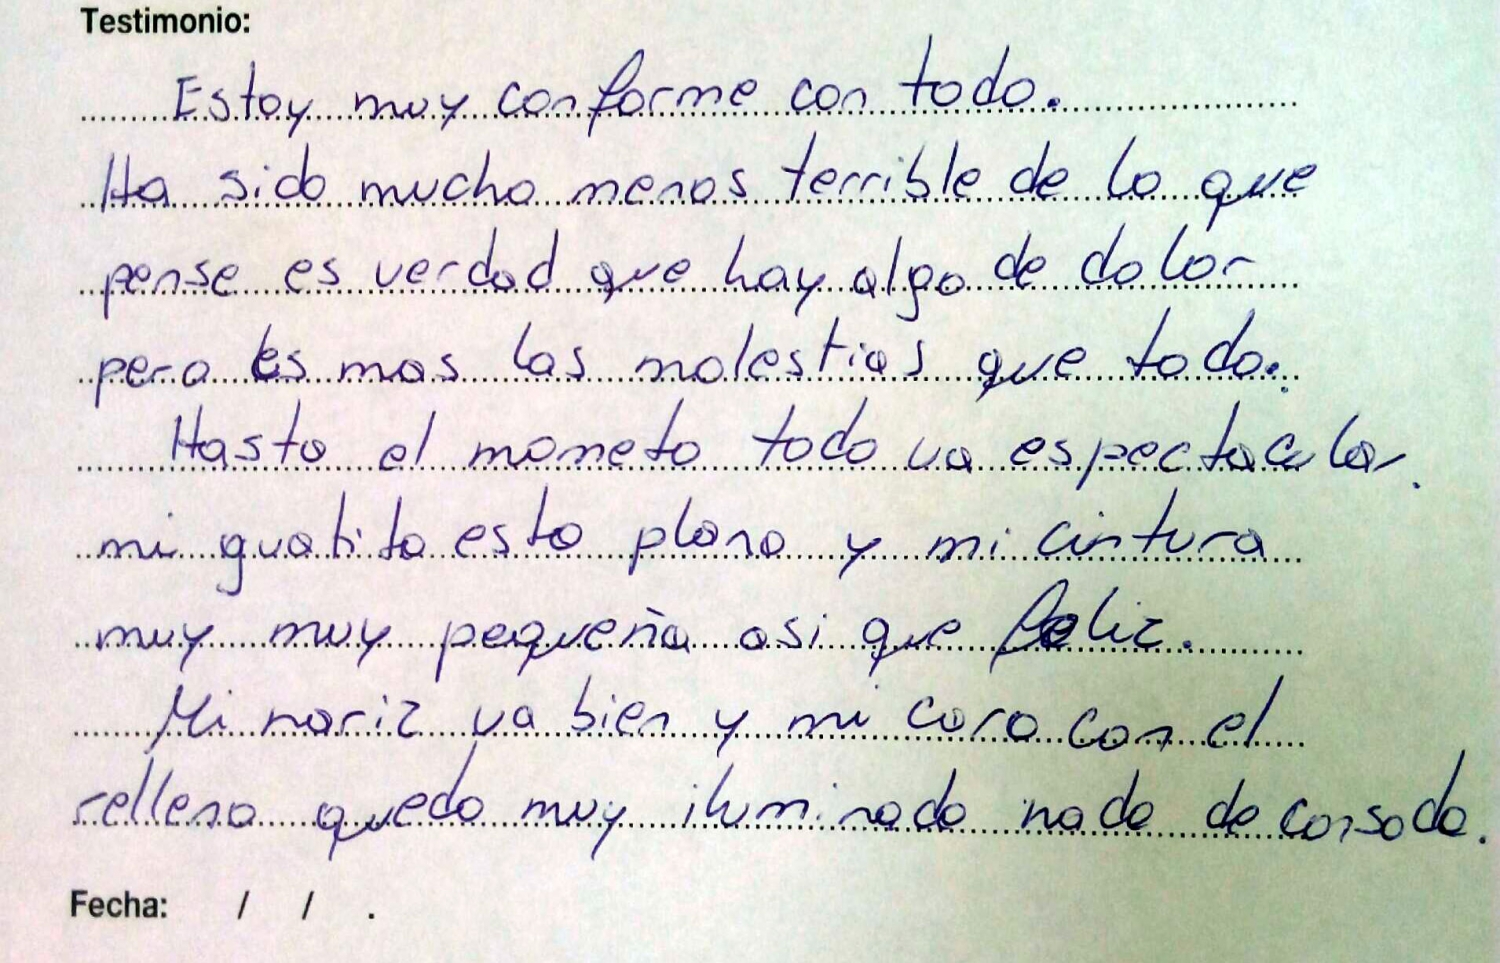 Testimonio:
Estoy muy conforme con todo.
Ha sido mucho menos terrible de lo que
pense es verdad que hay algo de dolor
pero es mas las molestias que todo.
Hasta el mometo todo va espectacular.
mi guatita esta plana y mi cintura
muy muy pequeña asi que feliz.
Mi nariz va bien y mi cara con el
relleno queda muy iluminada nada de cansada.
Fecha: / / .